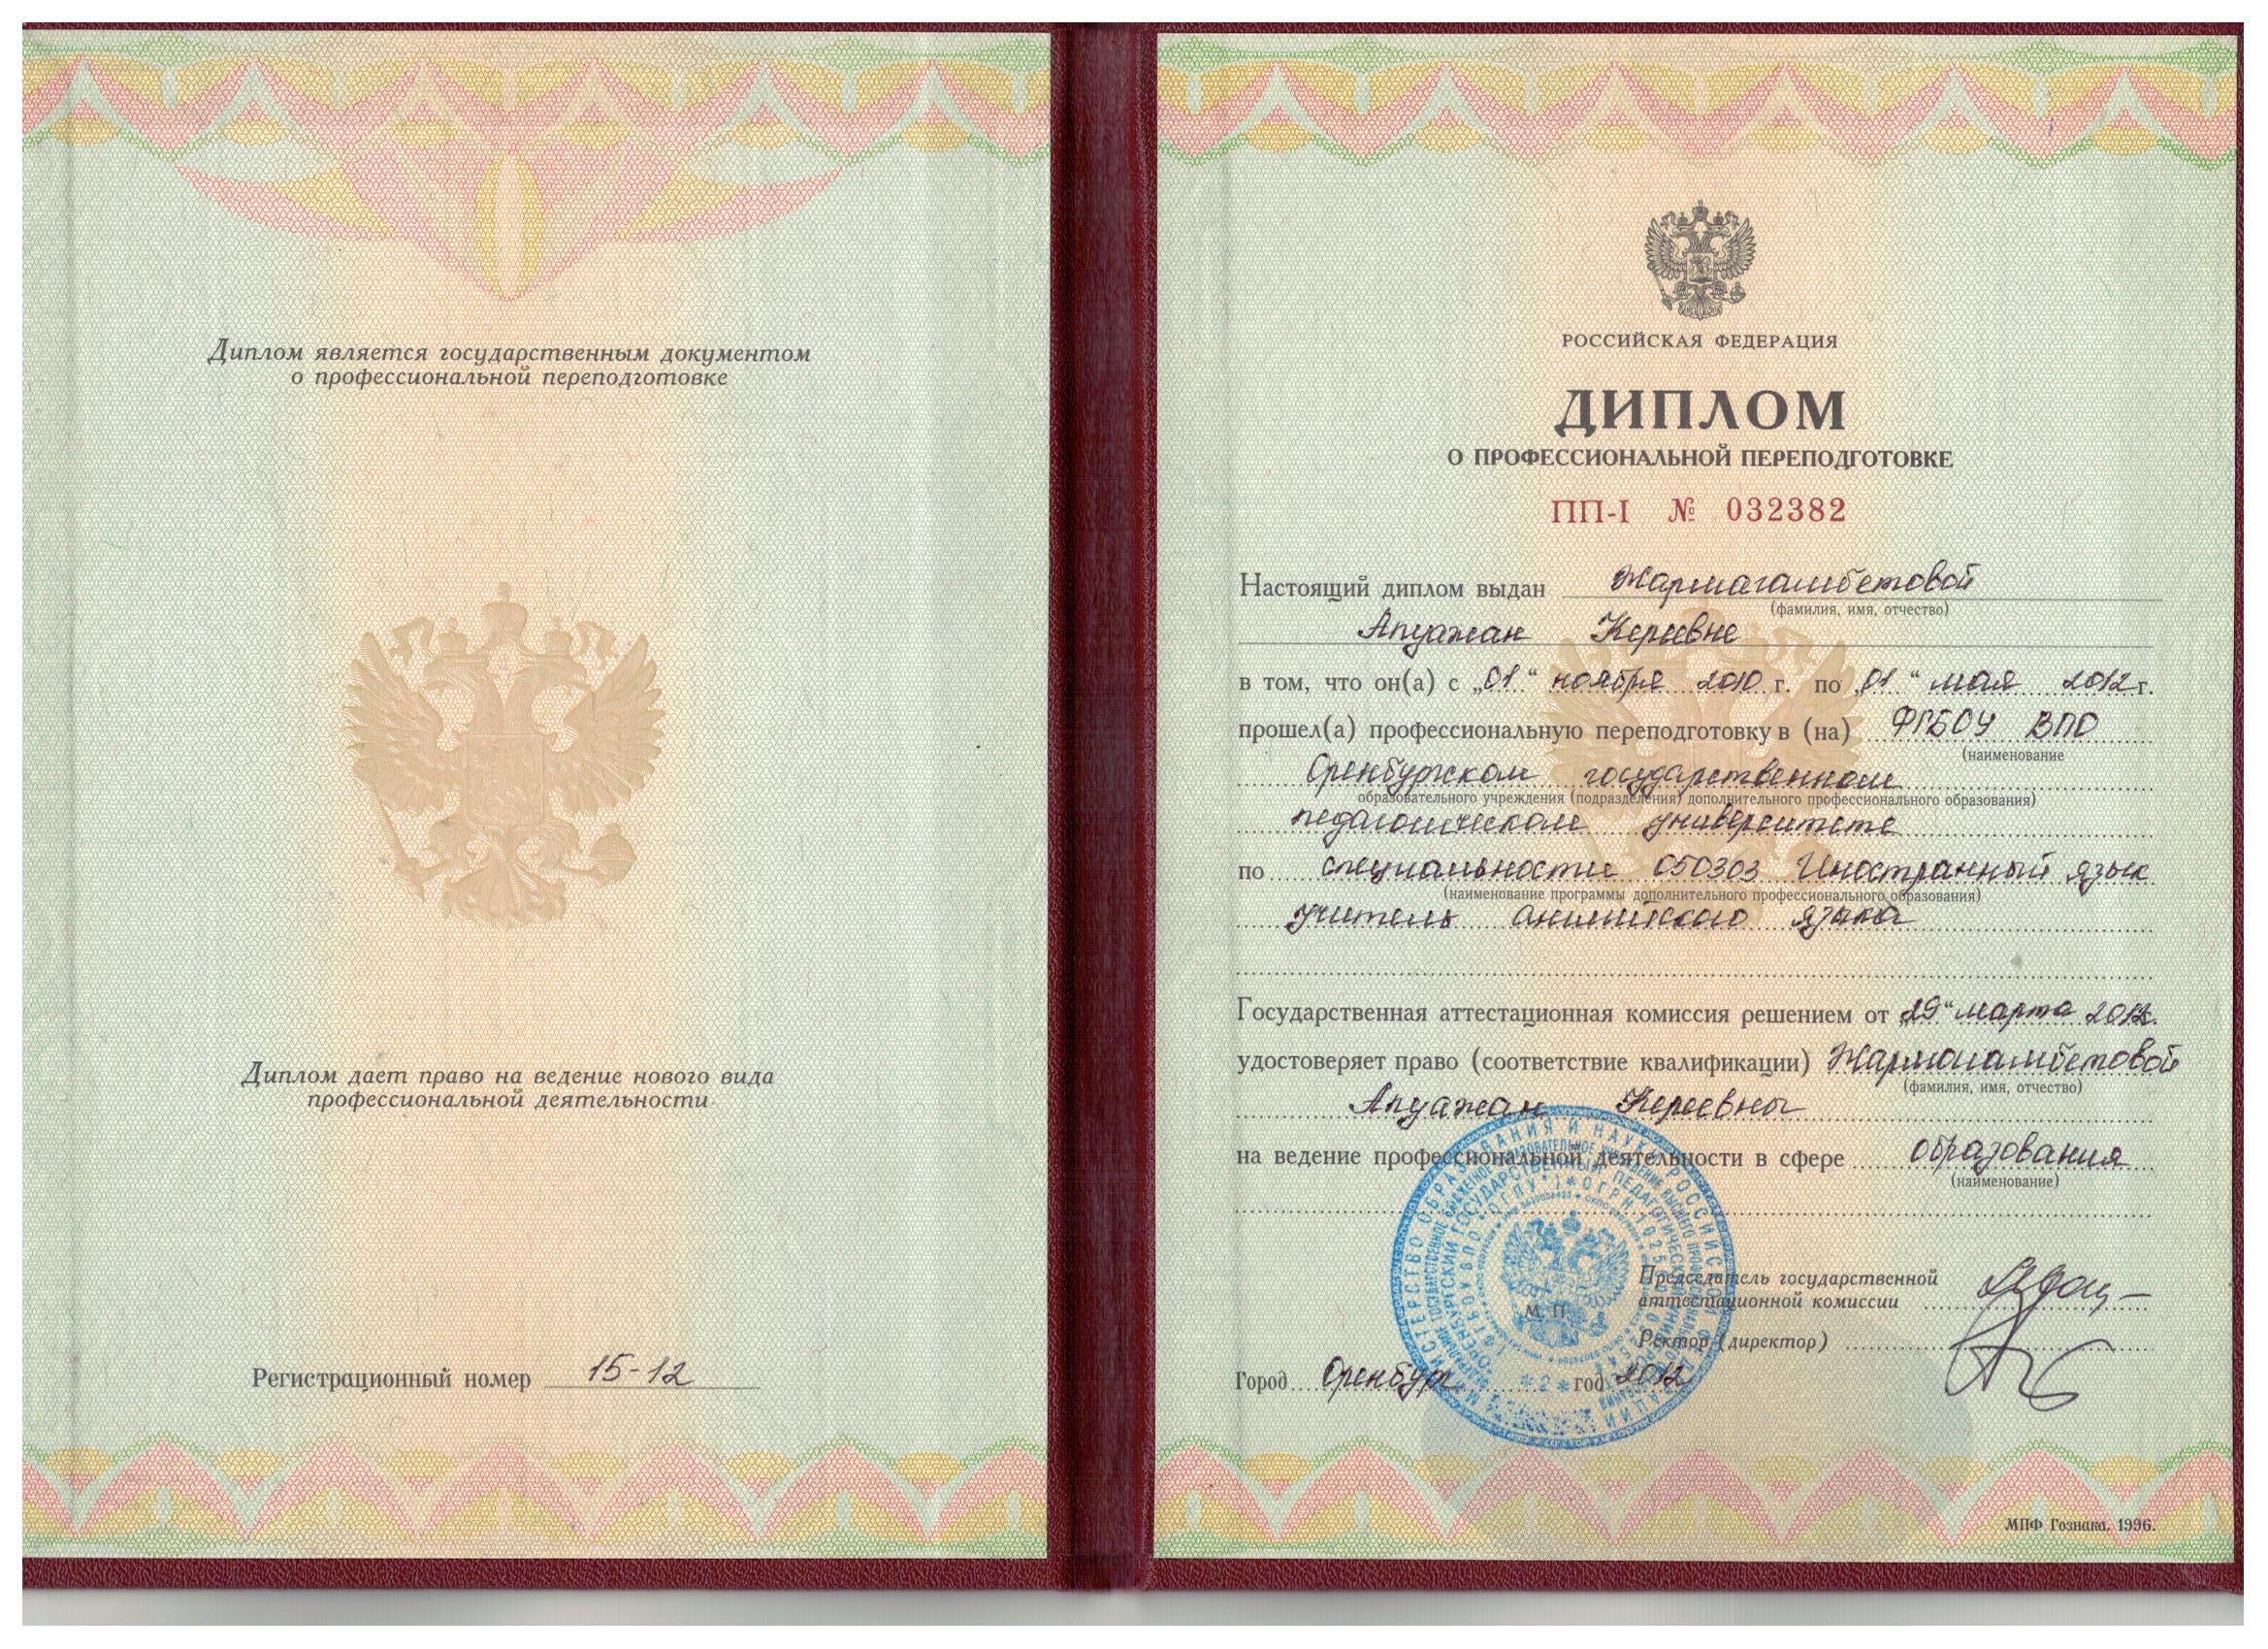 Диплом является государственным документом
о профессиональной переподготовке
Диплом дает право на ведение нового вида
профессиональной деятельности
Регистрационный номер 15-12
РОССИЙСКАЯ ФЕДЕРАЦИЯ
ДИПЛОМ
О ПРОФЕССИОНАЛЬНОЙ ПЕРЕПОДГОТОВКЕ
ПП-I № 032382
Настоящий диплом выдан Жармагамбетовой
(фамилия, имя, отчество)
Апуажан Кереевне
в том, что он(а) с „01“ ноября 2010 г. по „01“ мая 2012 г.
прошел(а) профессиональную переподготовку в (на) ФГБОУ ВПО
(наименование
Оренбургском государственном
образовательного учреждения (подразделения) дополнительного профессионального образования)
педагогическом университете
по специальности 050303 Иностранный язык
(наименование программы дополнительного профессионального образования)
учитель английского языка
Государственная аттестационная комиссия решением от „29“ марта 2012г.
удостоверяет право (соответствие квалификации) Жармагамбетовой
(фамилия, имя, отчество)
Апуажан Кереевны
на ведение профессиональной деятельности в сфере образования
(наименование)
Председатель государственной
аттестационной комиссии
М. П.
Ректор (директор)
Город Оренбург год 2012
МПФ Гознака. 1996.